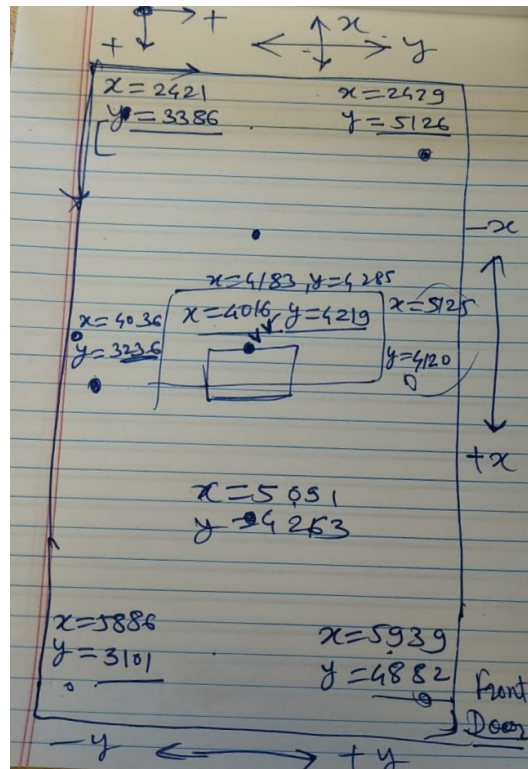 +
+
x
y
x=2421
y=3386
x=2429
y=5126
-x
x=4183, y=4285
x=4036
y=3236
x=4016, y=4219
x=5125
y=4120
+x
x=5051
y=4263
x=5886
y=3101
x=5939
y=4882
Front
Door
-y
+y